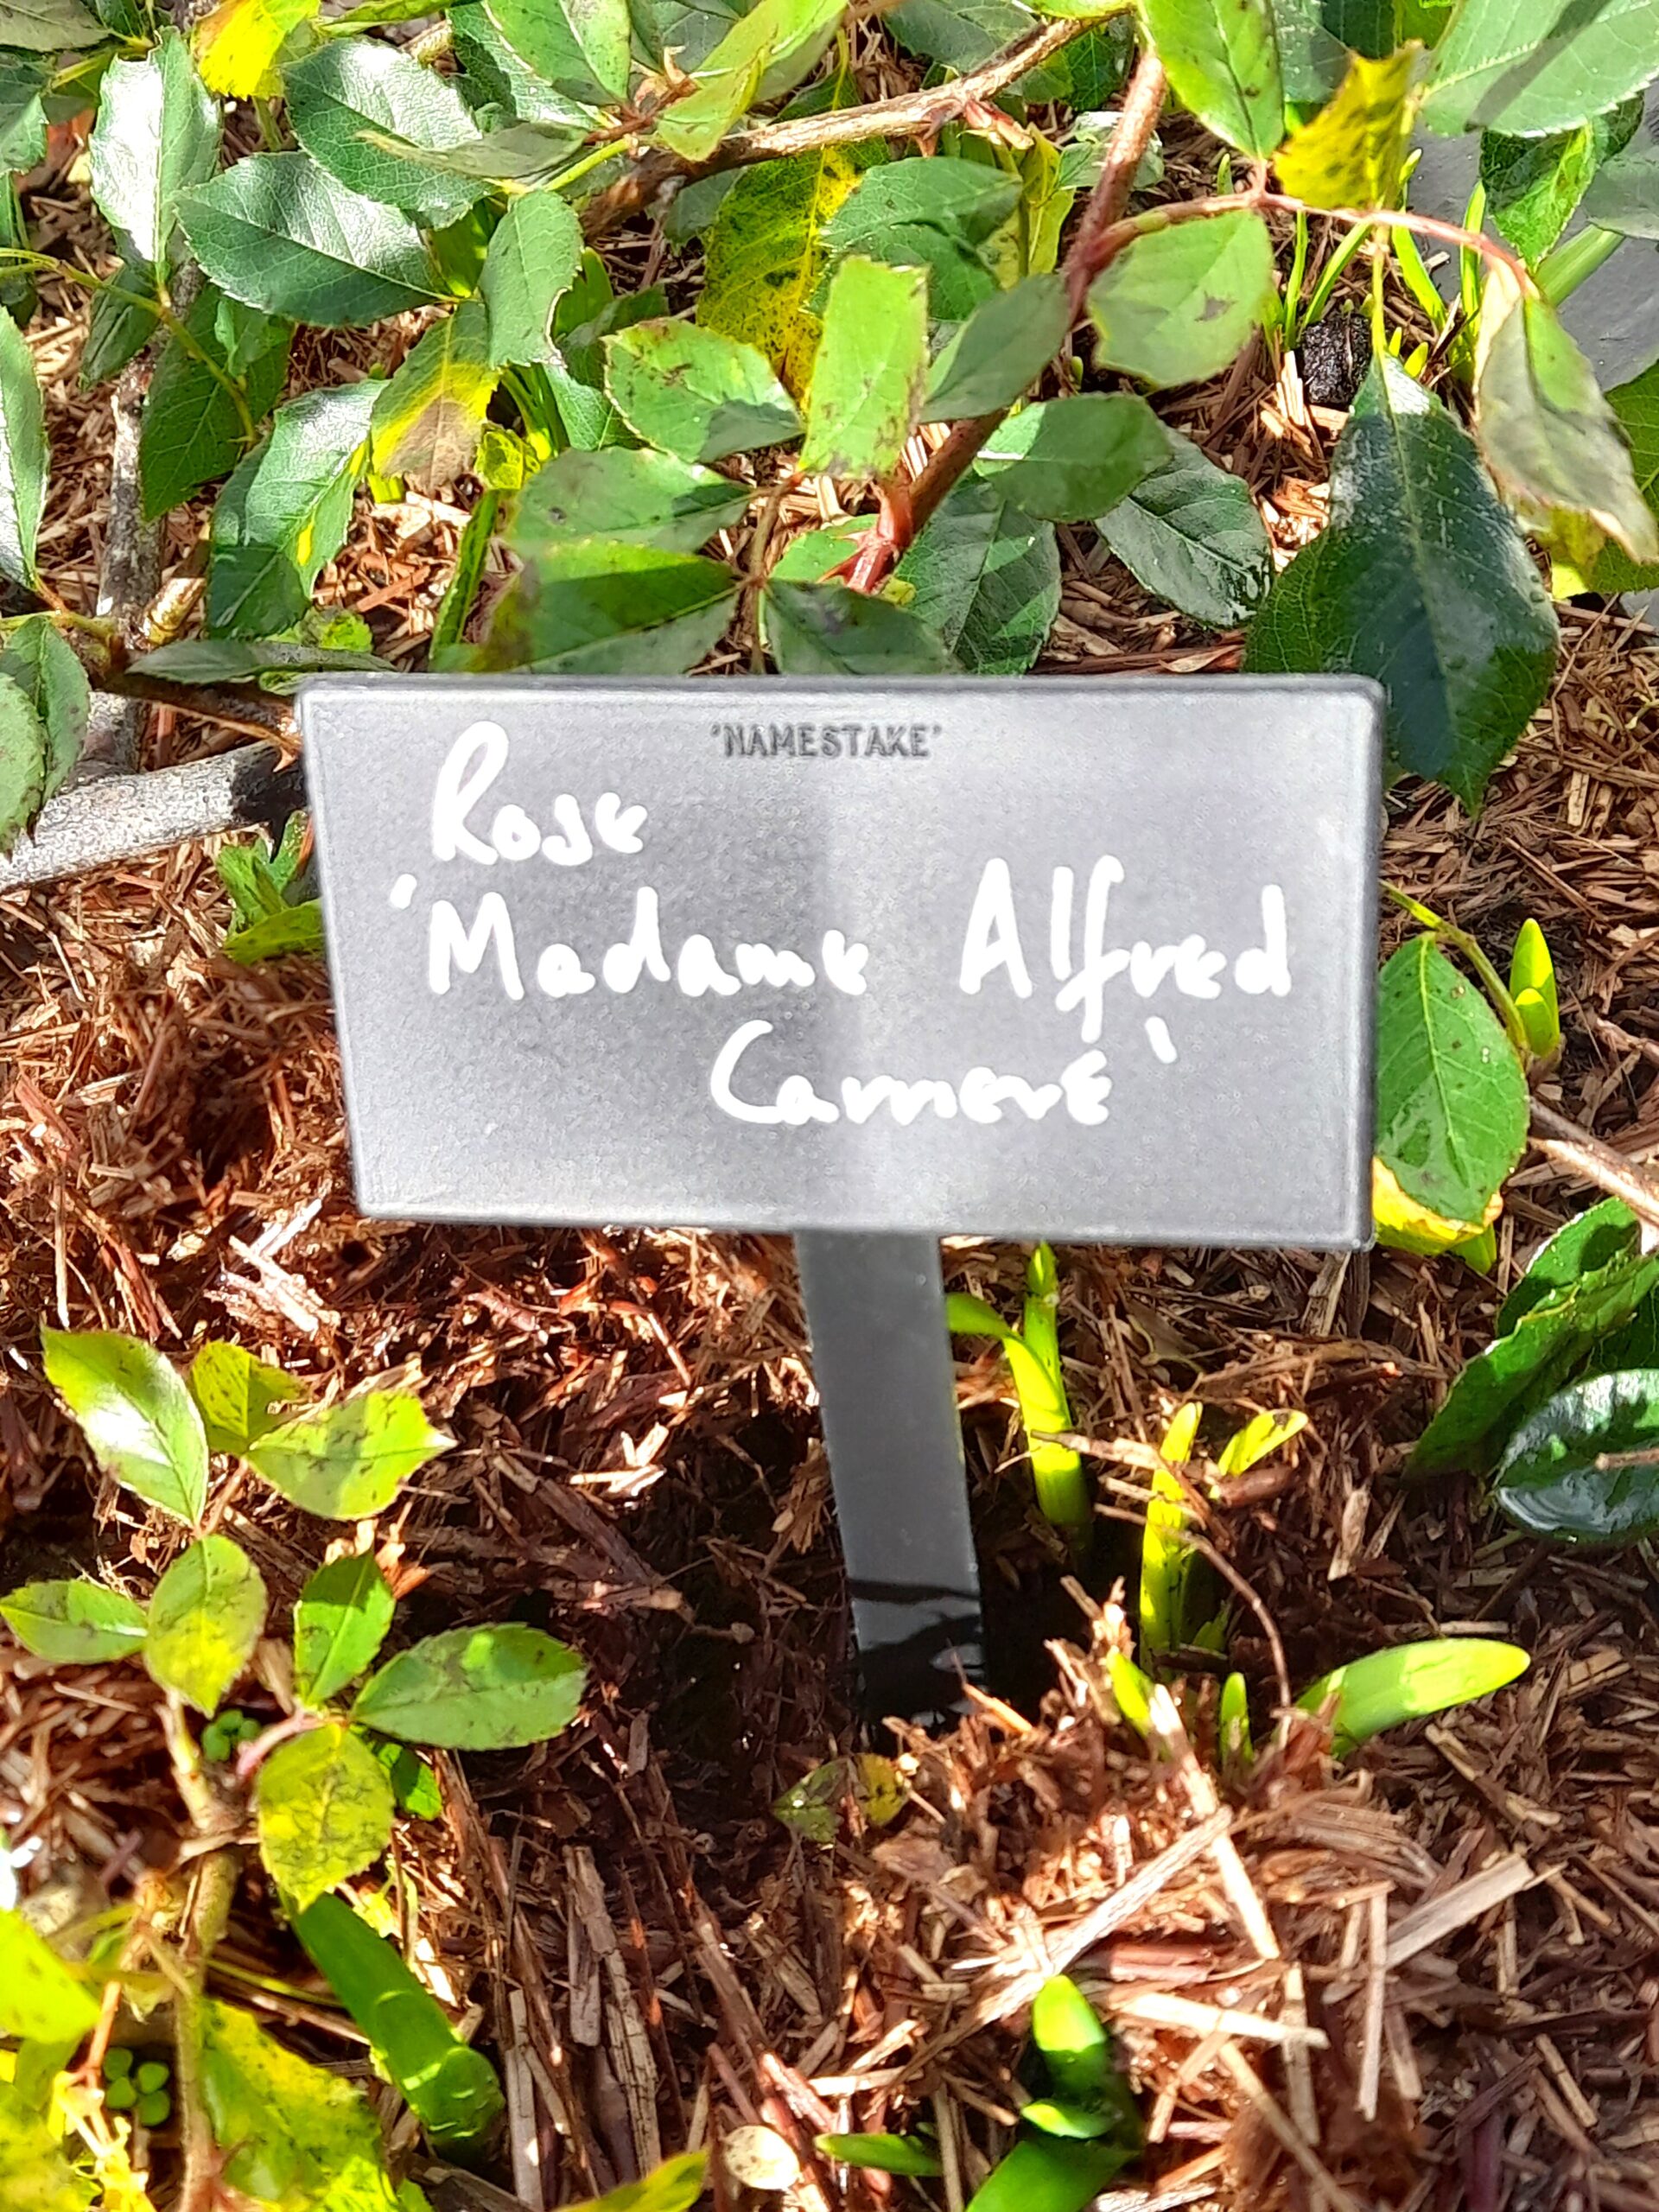 'NAMESTAKE'
Rose
'Madame Alfred
Carriere'